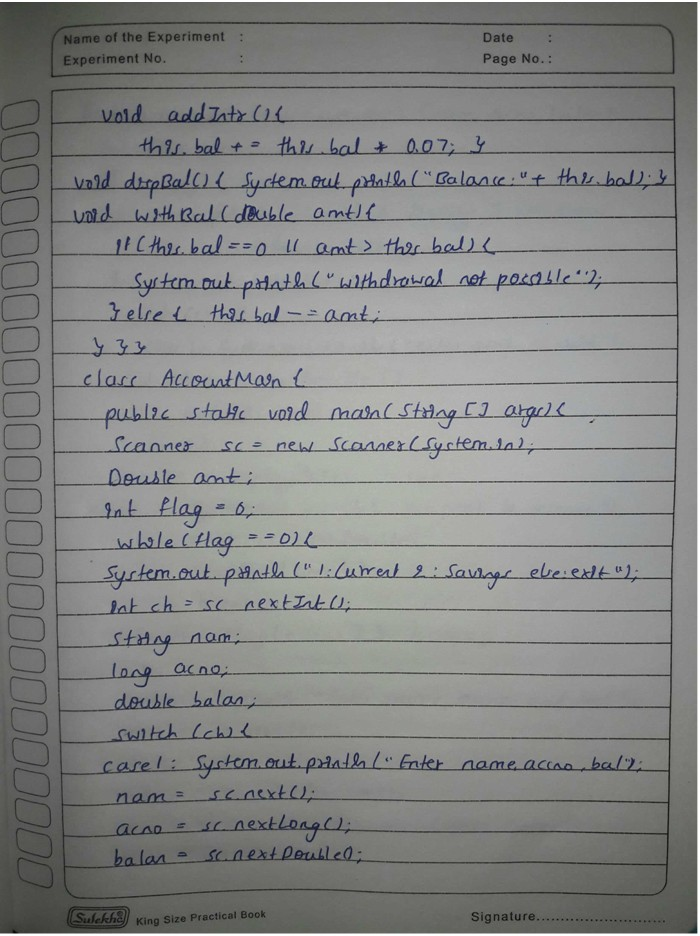 Name of the Experiment :
Date :
Experiment No. :
Page No. :
void addIntr(){
this.bal += this.bal * 0.07; }
void dispBal(){ System.out.println("Balance:"+ this.bal); }
void withBal(double amt){
if(this.bal==0 || amt> this.bal){
System.out.println("withdrawal not possible");
} else { this.bal -= amt;
} } }
class AccountMain {
public static void main(String [] args){
Scanner sc = new Scanner(System.in);
Double amt;
int flag = 0;
while(flag ==0){
System.out.println("1:Current 2: Savings else:exit");
int ch = sc.nextInt();
String nam;
long acno;
double balan;
switch (ch){
case1: System.out.println("Enter name, accno, bal");
nam = sc.next();
acno = sc.nextLong();
balan = sc.nextDouble();
Sulekha King Size Practical Book
Signature............................